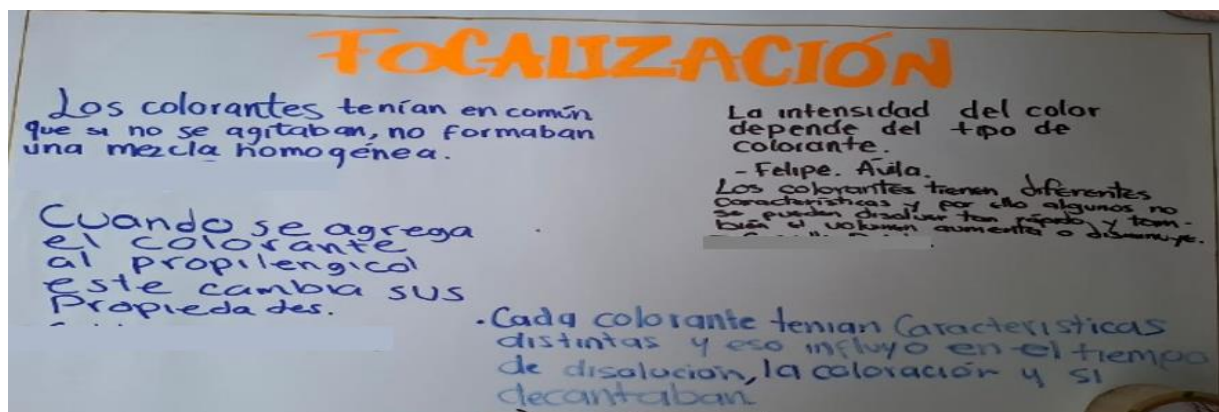 FOCALIZACIÓN
Los colorantes tenían en común
que si no se agitaban, no formaban
una mezcla homogénea.
Cuando se agrega
el colorante
al propilengicol
este cambia sus
Propiedades.
La intensidad del color
depende del tipo de
colorante.
- Felipe. Ávila.
Los colorantes tienen diferentes
características y por ello algunos no
se pueden disolver tan rápido y tam-
bién el volumen aumenta o disminuye.
. Cada colorante tenian Caracteristicas
distintas y eso influyo en el tiempo
de disolucion, la coloración y si
decantaban